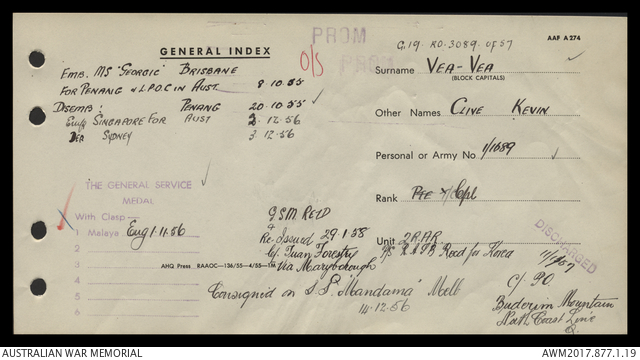 PROM
G.19. RO.3089. of 57
AAF A274
GENERAL INDEX
O/S
PROM
EMB. MS "GEORGIC" BRISBANE
FOR PENANG & L.P.O.C in AUST 8.10.55
DISEMB: PENANG 20.10.55
Emb SINGAPORE FOR AUST 2.12.56
Dea SYDNEY 3.12.56
Surname VEA-VEA
(BLOCK CAPITALS)
Other Names CLIVE KEVIN
Personal or Army No. 1/1689
Rank Pte T/Cpl
Unit 2 RAR
Reed for Korea
DISCHARGED
THE GENERAL SERVICE
MEDAL
With Clasp
1 Malaya Eng 1.11.56
2
3
4
5
6
G.S.M. RETD
&
Re-Issued 29.1.58
C/- Tuan Forestry
Via Maryborough
AHQ Press RAAOC—136/55—4/55—1M
Consigned on S.S. "Mandama" Melb
14.12.56
C/- P.O.
Buderim Mountain
North Coast Line
Q.
AUSTRALIAN WAR MEMORIAL
AWM2017.877.1.19